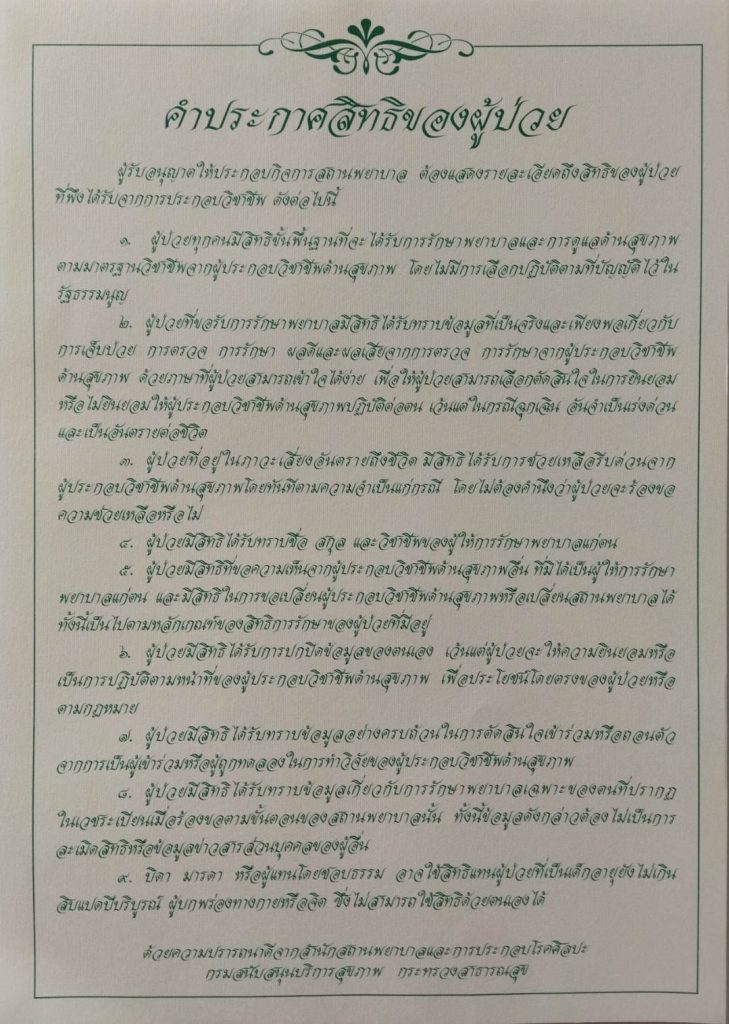 คำประกาศสิทธิของผู้ป่วย
ผู้รับอนุญาตให้ประกอบกิจการสถานพยาบาล ต้องแสดงรายละเอียดถึงสิทธิของผู้ป่วย
ที่พึงได้รับจากการประกอบวิชาชีพ ดังต่อไปนี้
๑. ผู้ป่วยทุกคนมีสิทธิขั้นพื้นฐานที่จะได้รับการรักษาพยาบาลและการดูแลด้านสุขภาพ
ตามมาตรฐานวิชาชีพจากผู้ประกอบวิชาชีพด้านสุขภาพ โดยไม่มีการเลือกปฏิบัติตามที่บัญญัติไว้ใน
รัฐธรรมนูญ
๒. ผู้ป่วยที่ขอรับการรักษาพยาบาลมีสิทธิได้รับทราบข้อมูลที่เป็นจริงและเพียงพอเกี่ยวกับ
การเจ็บป่วย การตรวจ การรักษา ผลดีและผลเสียจากการตรวจ การรักษาจากผู้ประกอบวิชาชีพ
ด้านสุขภาพ ด้วยภาษาที่ผู้ป่วยสามารถเข้าใจได้ง่าย เพื่อให้ผู้ป่วยสามารถเลือกตัดสินใจในการยินยอม
หรือไม่ยินยอมให้ผู้ประกอบวิชาชีพด้านสุขภาพปฏิบัติต่อตน เว้นแต่ในกรณีฉุกเฉิน อันจำเป็นเร่งด่วน
และเป็นอันตรายต่อชีวิต
๓. ผู้ป่วยที่อยู่ในภาวะเสี่ยงอันตรายถึงชีวิต มีสิทธิได้รับการช่วยเหลือรีบด่วนจาก
ผู้ประกอบวิชาชีพด้านสุขภาพโดยทันทีตามความจำเป็นแก่กรณี โดยไม่ต้องคำนึงว่าผู้ป่วยจะร้องขอ
ความช่วยเหลือหรือไม่
๔. ผู้ป่วยมีสิทธิได้รับทราบชื่อ สกุล และวิชาชีพของผู้ให้การรักษาพยาบาลแก่ตน
๕. ผู้ป่วยมีสิทธิที่ขอความเห็นจากผู้ประกอบวิชาชีพด้านสุขภาพอื่น ที่มิได้เป็นผู้ให้การรักษา
พยาบาลแก่ตน และมีสิทธิในการขอเปลี่ยนผู้ประกอบวิชาชีพด้านสุขภาพหรือเปลี่ยนสถานพยาบาลได้
ทั้งนี้เป็นไปตามหลักเกณฑ์ของสิทธิการรักษาของผู้ป่วยที่มีอยู่
๖. ผู้ป่วยมีสิทธิได้รับการปกปิดข้อมูลของตนเอง เว้นแต่ผู้ป่วยจะให้ความยินยอมหรือ
เป็นการปฏิบัติตามหน้าที่ของผู้ประกอบวิชาชีพด้านสุขภาพ เพื่อประโยชน์โดยตรงของผู้ป่วยหรือ
ตามกฎหมาย
๗. ผู้ป่วยมีสิทธิได้รับทราบข้อมูลอย่างครบถ้วนในการตัดสินใจเข้าร่วมหรือถอนตัว
จากการเป็นผู้เข้าร่วมหรือผู้ถูกทดลองในการทำวิจัยของผู้ประกอบวิชาชีพด้านสุขภาพ
๘. ผู้ป่วยมีสิทธิได้รับทราบข้อมูลเกี่ยวกับการรักษาพยาบาลเฉพาะของตนที่ปรากฏ
ในเวชระเบียนเมื่อร้องขอตามขั้นตอนของสถานพยาบาลนั้น ทั้งนี้ข้อมูลดังกล่าวต้องไม่เป็นการ
ละเมิดสิทธิหรือข้อมูลข่าวสารส่วนบุคคลของผู้อื่น
๙. บิดา มารดา หรือผู้แทนโดยชอบธรรม อาจใช้สิทธิแทนผู้ป่วยที่เป็นเด็กอายุยังไม่เกิน
สิบแปดปีบริบูรณ์ ผู้บกพร่องทางกายหรือจิต ซึ่งไม่สามารถใช้สิทธิด้วยตนเองได้
ด้วยความปรารถนาดีจากสำนักสถานพยาบาลและการประกอบโรคศิลปะ
กรมสนับสนุนบริการสุขภาพ กระทรวงสาธารณสุข